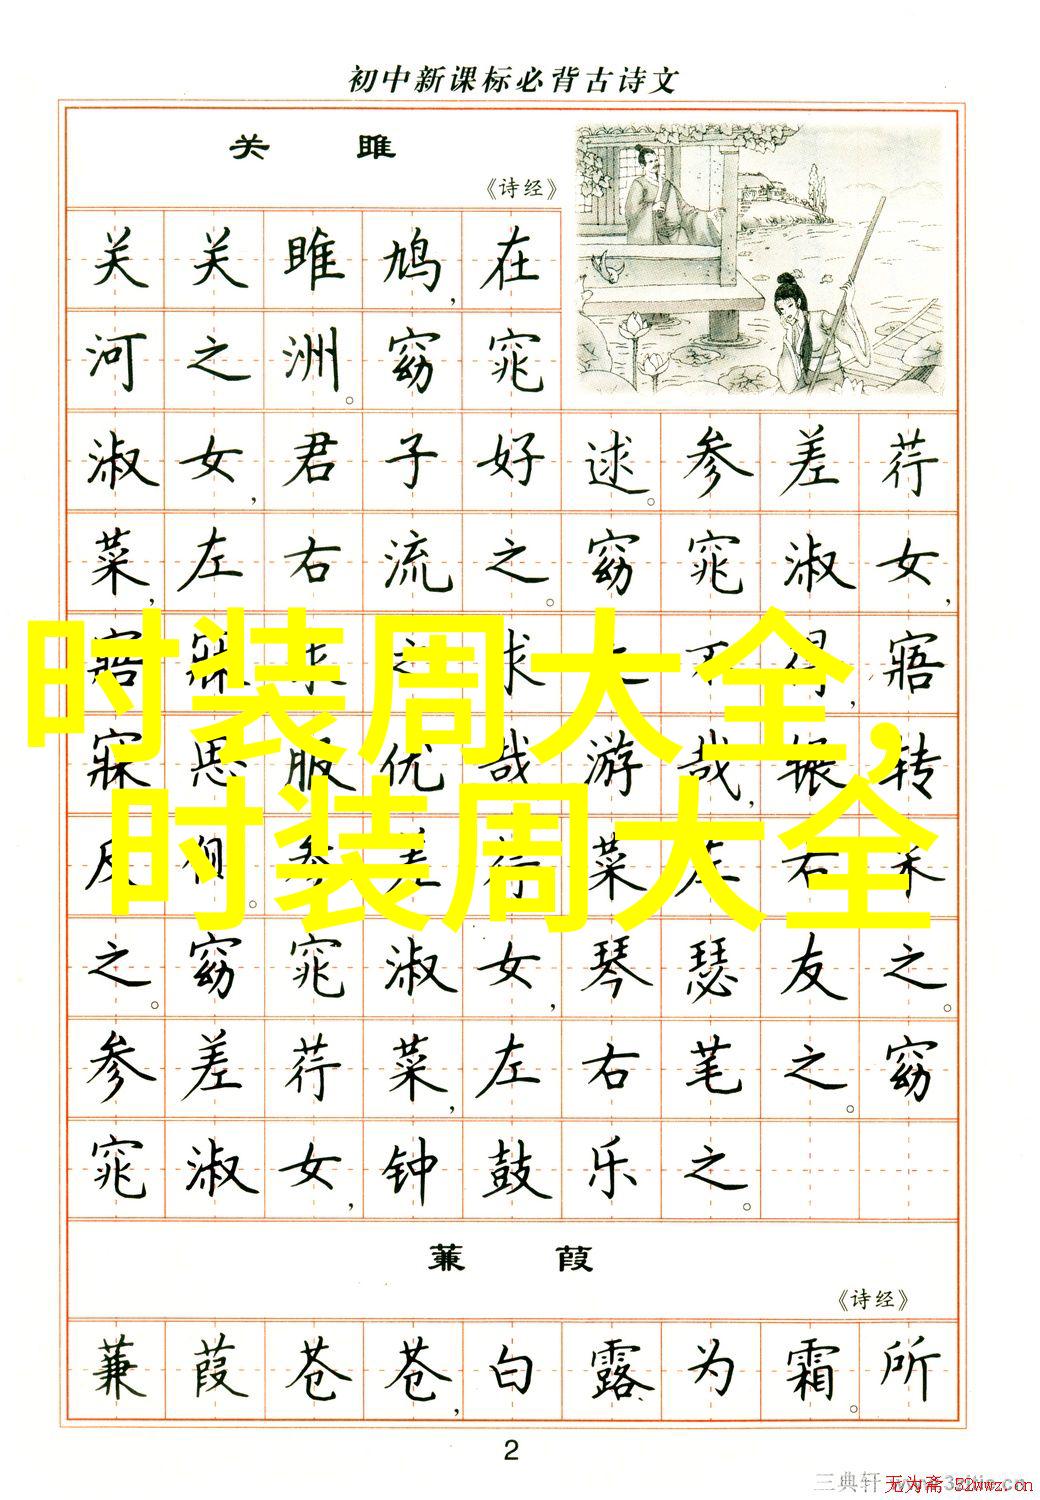 初中新课标必背古诗文
关 雎
《诗经》
关关雎鸠,在
河之洲。窈窕
淑女,君子好逑。参差荇
菜,左右流之。窈窕淑女,
寤寐求之求之不得,寤
寐思服优哉游哉,辗转
反侧。参差荇菜左右采
之。窈窕淑女,琴瑟友之。
参差荇菜,左右芼之。窈
窕淑女,钟鼓乐之。
时装周大全,
时装周大全
蒹 葭
《诗经》
蒹葭苍苍,白露为霜。所
2
三典轩
无为斋 52wwz.cn